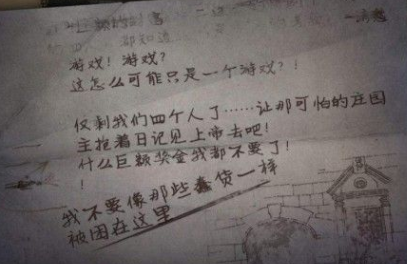 都知道
游戏！游戏？
这怎么可能只是一个游戏？！
仅剩我们四个人了……让那可怕的庄园
主抱着日记见上帝去吧！
什么巨额奖金我都不要了！
！
我不要像那些蠢货一样
被困在这里